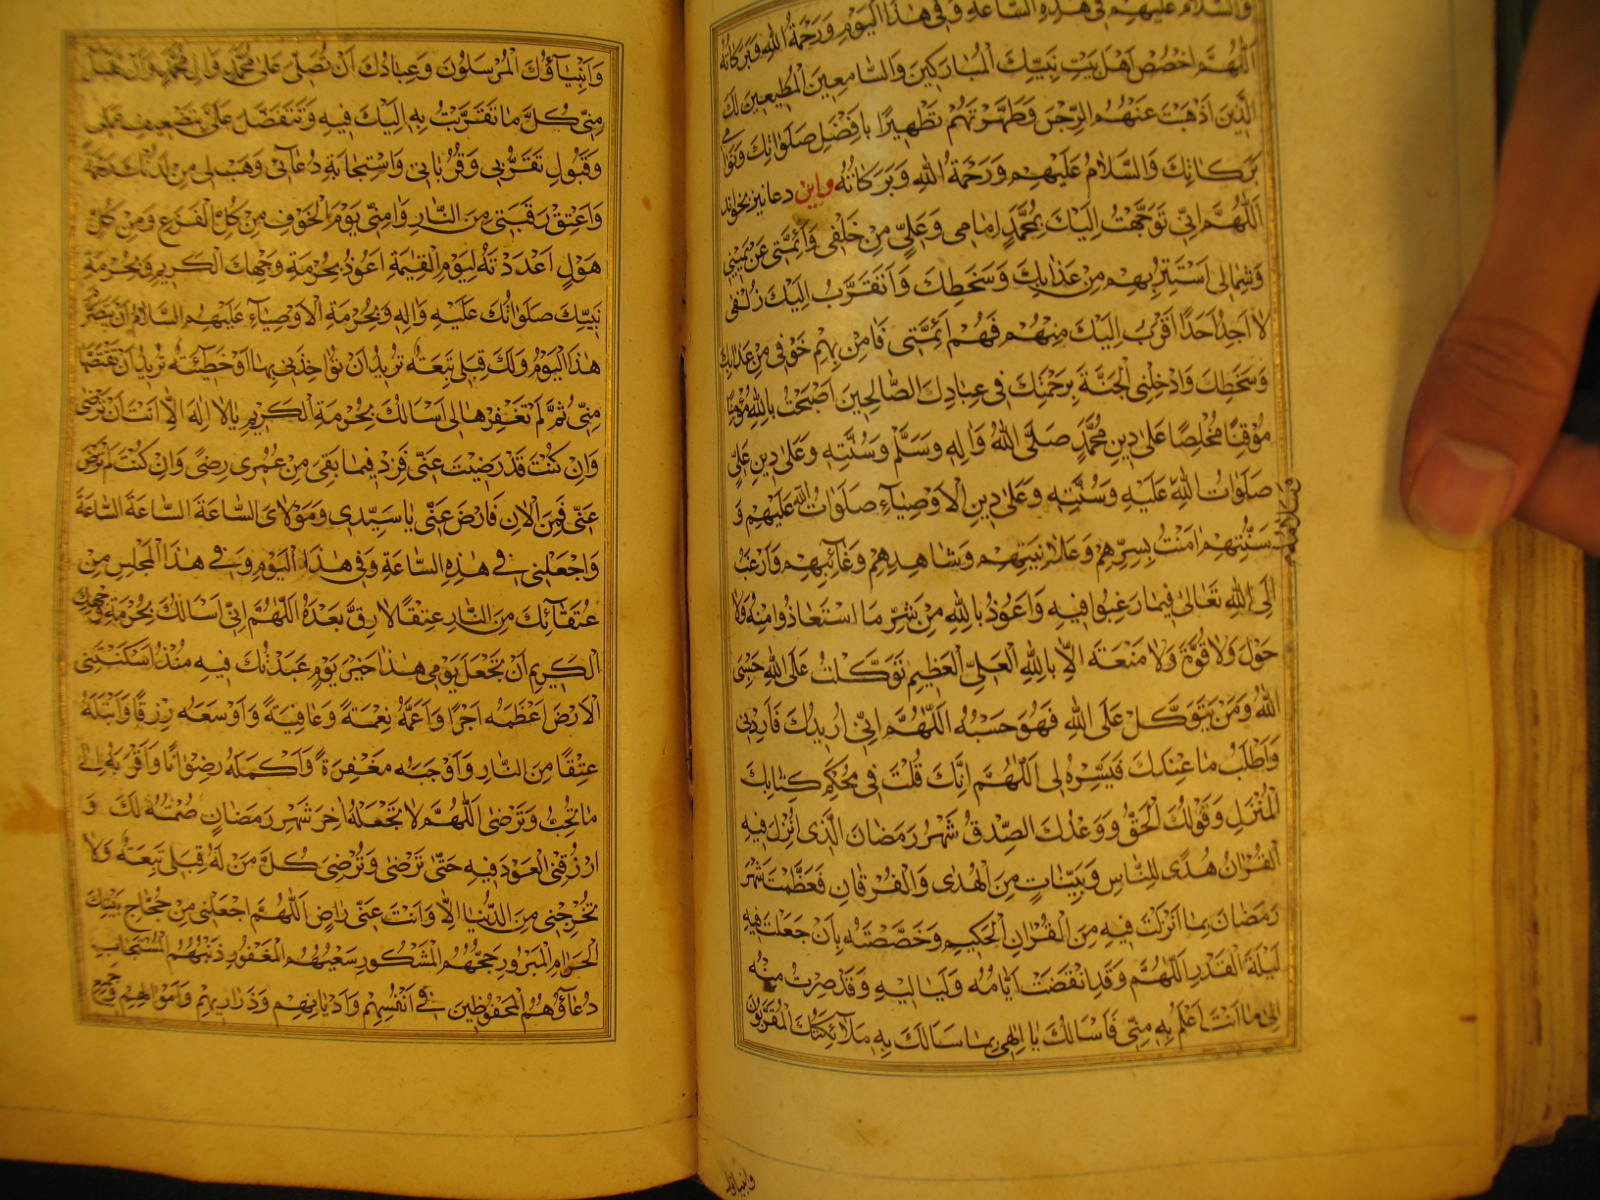 والسلام عليهم في هذه الساعة وفي هذا اليوم ورحمة الله وبركاته
اللهم اخصص اهل بيت نبيك المباركين والسامعين المطيعين لك
الذين اذهبت عنهم الرجس وطهرتهم تطهيرا بافضل صلواتك ونوامي
بركاتك والسلام عليهم ورحمة الله وبركاته واين دعا نيز بخواند
اللهم اني توجهت اليك بمحمد امامي وعلي من خلفي وائمتي عن يميني
وشمالي استتر بهم من عذابك وسخطك واتقرب اليك زلفى
لا اجد احدا اقرب اليك منهم فهم ائمتي فامن بهم خوفي من عذابك
وسخطك وادخلني الجنة برحمتك في عبادك الصالحين اصبحت بالله مؤمنا
موقنا مخلصا على دين محمد صلى الله واله وسلم وسنته وعلى دين علي
صلوات الله عليه وسنته وعلى دين الاوصياء صلوات الله عليهم و
سنتهم امنت بسرهم وعلانيتهم وشاهدهم وغائبهم وارغب
الى الله تعالى فيما رغبوا فيه واعوذ بالله من شر ما استعاذوا منه ولا
حول ولا قوة ولا منعة الا بالله العلي العظيم توكلت على الله حسبي
الله ومن يتوكل على الله فهو حسبه اللهم اني اريدك فاردني
واطلب ما عندك فيسره لي اللهم انك قلت في محكم كتابك
المنزل وقولك الحق ووعدك الصدق شهر رمضان الذي انزل فيه
القران هدى للناس وبينات من الهدى والفرقان فعظمت شهر
رمضان بما انزلت فيه من القران الحكيم وخصصته بان جعلت فيه
ليلة القدر اللهم وقد انقضت ايامه ولياليه وقد صرت منه
الى ما انت اعلم به مني فاسالك يا الهي بما سالك به ملائكتك المقربون
وانبياؤك
وانبياؤك المرسلون وعبادك ان تصلي على محمد وال محمد وان تقبل
مني كل ما تقربت به اليك فيه وتتفضل علي بتضعيف عملي
وقبول تقربي وقرباتي واستجابة دعائي وهب لي من لدنك رحمة
واعتق رقبتي من النار وامني يوم الخوف من كل الفزع ومن كل
هول اعددته ليوم القيمة اعوذ بحرمة وجهك الكريم وبحرمة
نبيك صلواتك عليه واله وبحرمة الاوصياء عليهم السلام ان يتصرم
هذا اليوم ولك قبلي تبعة تريد ان تؤاخذني بها او خطيئة تريد ان تقتصها
مني ثم لم تغفرها لي اسالك بحرمة الكريم يا لا اله الا انت ان ترضى
وان كنت قد رضيت عني فزد فيما بقي من عمري رضى وان كنت لم ترض
عني فمن الان فارض عني يا سيدي ومولاي الساعة الساعة الساعة
واجعلني في هذه الساعة وفي هذا اليوم وفي هذا المجلس من
عتقائك من النار عتقا لا رق بعده اللهم اني اسالك بحرمة وجهك
الكريم ان تجعل يومي هذا خير يوم عبدتك فيه منذ اسكنتني
الارض اعظمه اجرا واعمه نعمة وعافية واوسعه رزقا وابتله
عتقا من النار واوجبه مغفرة واكمله رضوانا واقربه الى
ما تحب وترضى اللهم لا تجعله اخر شهر رمضان صمته لك و
ارزقني العود فيه حتى ترضى وترضي كل من له قبلي تبعة ولا
تخرجني من الدنيا الا وانت عني راض اللهم اجعلني من حجاج بيتك
الحرام المبرور حجهم المشكور سعيهم المغفور ذنبهم المستجاب
دعاؤهم المحفوظين في انفسهم واديانهم وذراريهم واموالهم